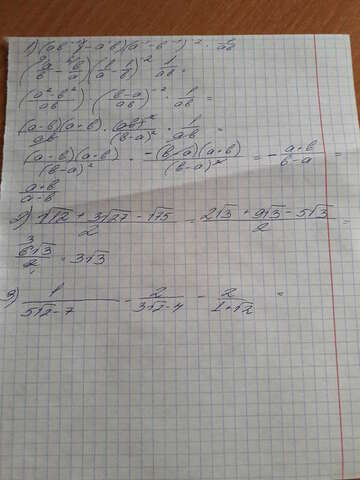 1) (ab⁻¹ - a⁻¹b)(a⁻¹ - b⁻¹)⁻² · 1/ab
(a/b - b/a)(1/a - 1/b)⁻² · 1/ab =
((a² - b²)/ab) · ((b-a)/ab)⁻² · 1/ab =
(a-b)(a+b)/ab · (ab)²/(b-a)² · 1/ab =
(a-b)(a+b)/(b-a)² = -(b-a)(a+b)/(b-a)² = - (a+b)/(b-a) =
(a+b)/(a-b)
2) (√12 + 3√27 - √75)/2 = (2√3 + 9√3 - 5√3)/2 =
6√3/2 = 3√3
3) 1/(5√2 - 7) - 2/(3√2 - 4) - 2/(1+√2) =